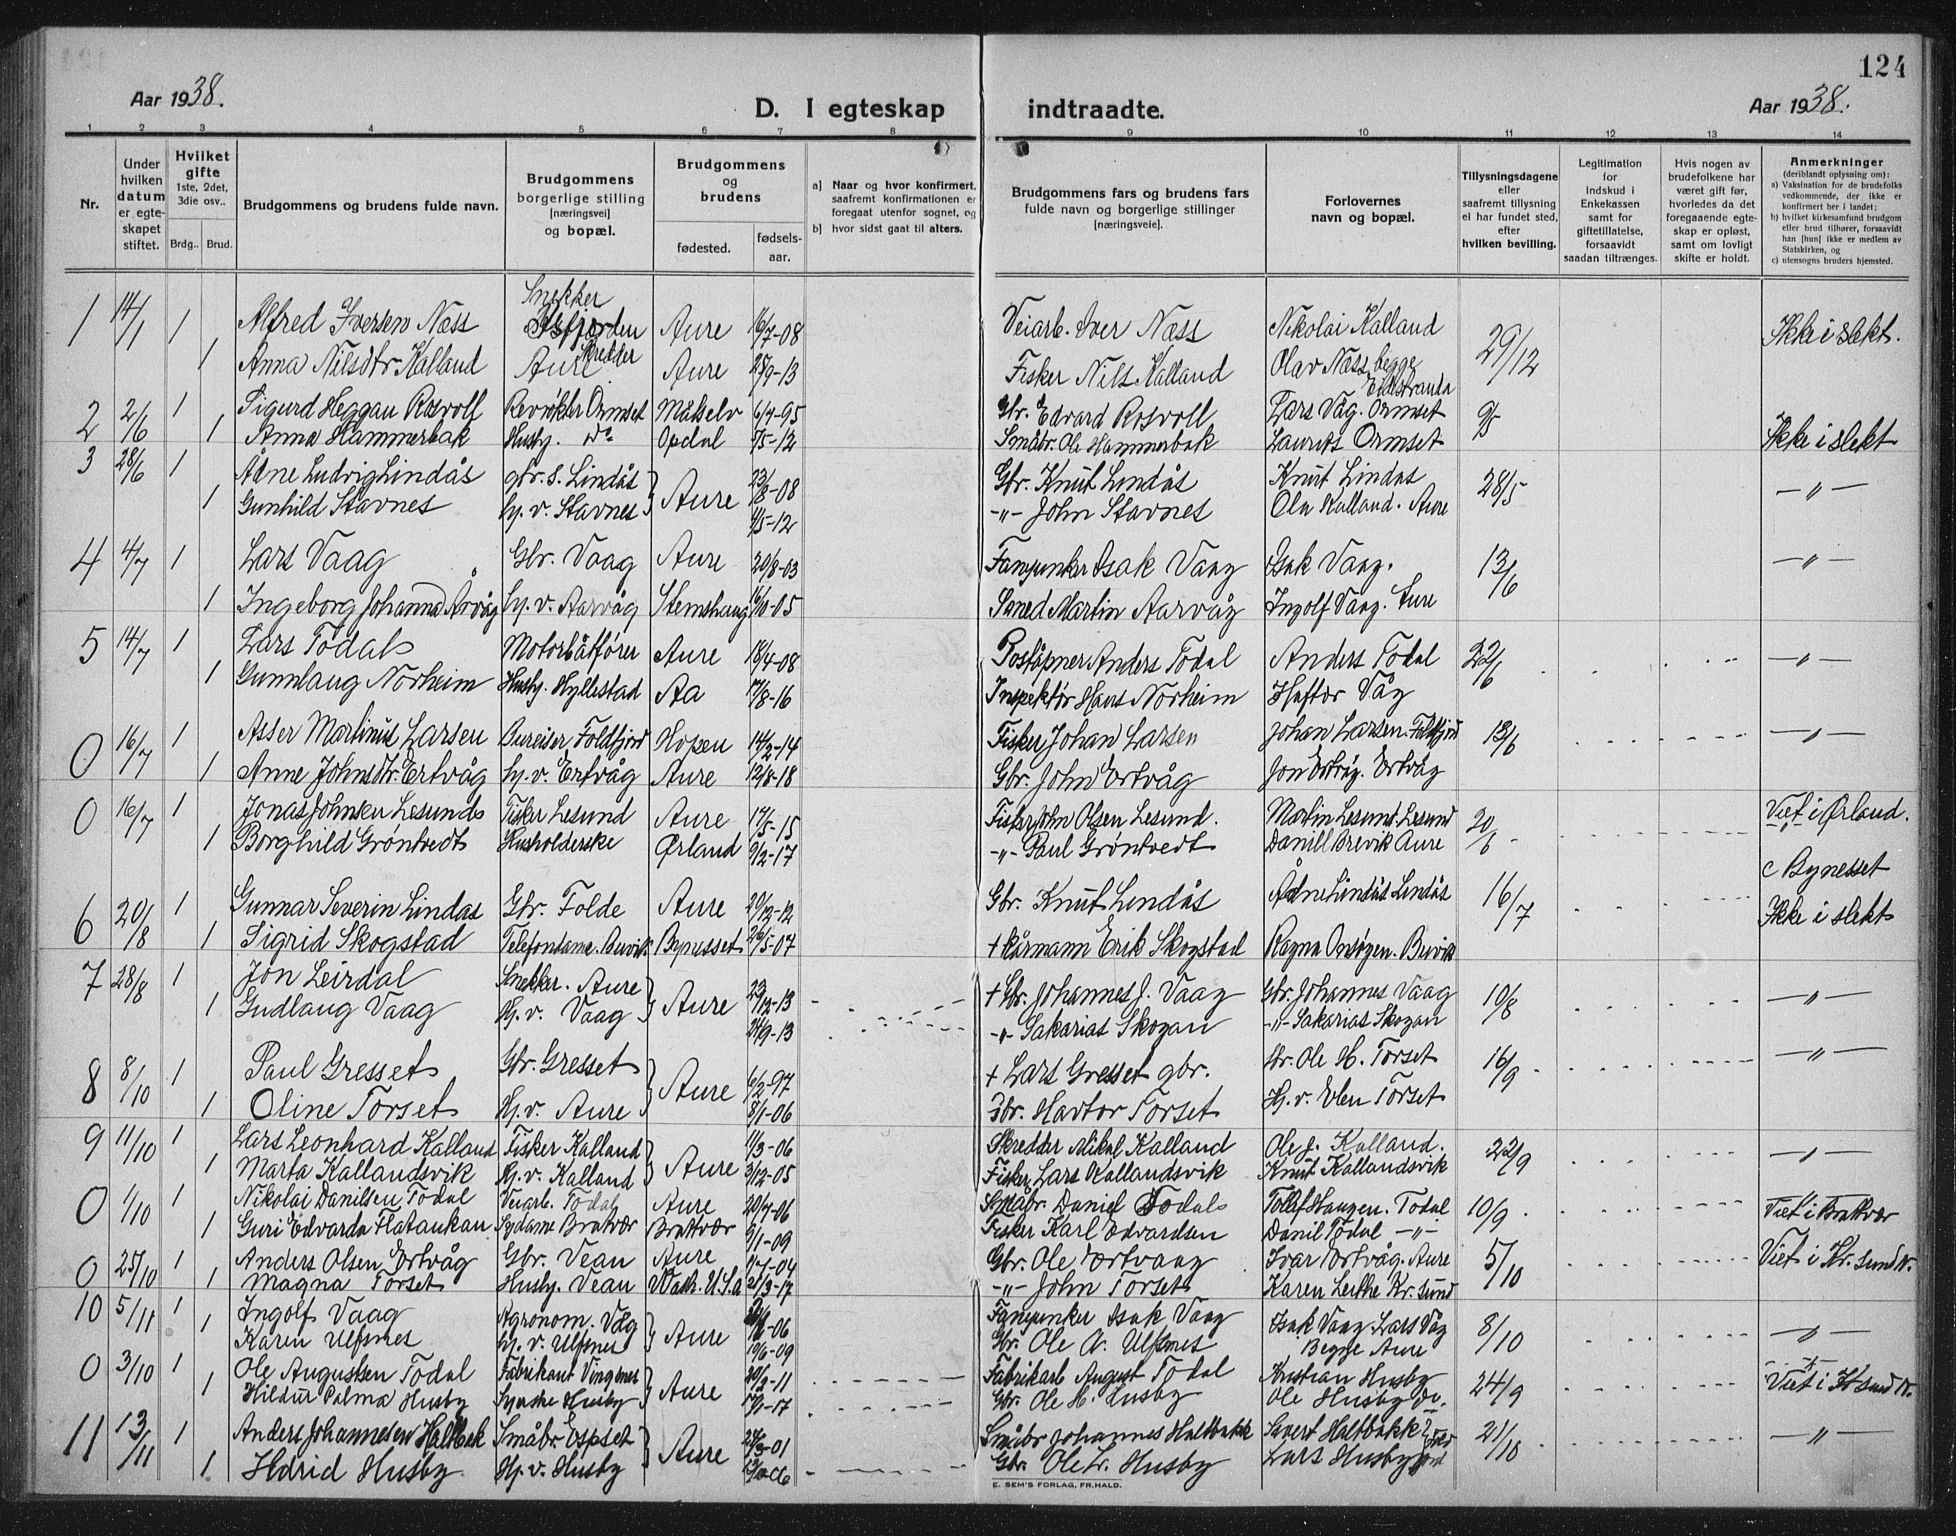 124
Aar 1938.
D. I egteskap indtraadte.
Aar 1938.
1 2 3 4 5 6 7 8 9 10 11 12 13 14
Nr.
Under hvilken datum er egteskapet stiftet.
Hvilket gifte 1ste, 2det, 3die osv..
Brdg.. Brud.
Brudgommens og brudens fulde navn.
Brudgommens borgerlige stilling [næringsvei] og bopæl.
Brudgommens og brudens
fødested. fødsels-aar.
a) Naar og hvor konfirmert, saafremt konfirmationen er foregaat utenfor sognet, og
b) hvor sidst gaat til alters.
Brudgommens fars og brudens fars fulde navn og borgerlige stillinger [næringsveie].
Forlovernes navn og bopæl.
Tillysningsdagene eller saafremt tillysning ei har fundet sted, efter hvilken bevilling.
Legitimation for indskud i Enkekassen samt for giftetillatelse, forsaavidt saadan tiltrænges.
Hvis nogen av brudefolkene har været gift før, hvorledes da det foregaaende egteskap er opløst, samt om lovligt skifte er holdt.
Anmerkninger (deriblandt oplysning om):
a) Vaksination for de brudefolks vedkommende, der ikke er konfirmert her i landet;
b) hvilket kirkesamfund brudgom eller brud tilhører, forsaavidt han [hun] ikke er medlem av Statskirken, og
c) utensogns bruders hjemsted.
1 14/1 1 Alfred Iversen Næss Snekker Aure 16/7-08 Veiarb. Iver Næss Nikolai Kalland 29/12 Ikke i slekt.
1 Anna Nilsdtr Kalland Aure Aure 25/9-13 Fisker Nils Kalland Olav Næss begge
2 2/6 1 Sigurd Heggan Rosvoll Revrøkter Ormset Målselv 6/4-95 Gbr. Edvard Rosvoll Lars Våg. Ormset 9/5
1 Anna Hammerbak Husby. do Opdal 7/5-12 Småbr. Ole Hammerbak Laurits Ormset Ikke i slekt
3 28/6 1 Ådne Ludvig Lindås gbr. s. Lindås Aure 23/8-08 Gbr. Knut Lindås Knut Lindås 28/5 —"—
1 Gunhild Stavnes hj. v. Stavnes -"- John Stavnes Ola Kalland. Aure
4 4/7 1 Lars Vaag Gbr. Vaag Aure 20/8-03 Isak Vaag Isak Vaag. 13/6 —"—
1 Ingeborg Johanna Årvåg hj. v. Aarvåg Stemshaug 16/10-05 Smed Martin Aarvåg Ingolf Vaag. Aure
5 14/7 1 Lars Todal Motorbåtfører Aure 18/4-08 Postøpner Anders Todal Anders Todal 22/6 —"—
1 Gunnlaug Norheim Husby. Hyllestad Aa 17/8-16 Inspektør Hans Norheim Haftor Våg
0 16/7 1 Asser Martinus Larsen Bureiser Foldfjord Hopen 14/2-14 Fisker Johan Larsen Johan Larsen. Foldfjord 13/6 —"—
1 Anne Johnsdtr. Ertvåg hj. v. Ertvåg Aure 12/8-18 Gbr. John Ertvåg Jon Ertvåg. Ertvåg
0 16/7 1 Jonas Johnsen Lesund Fisker Lesund Aure 17/5-15 Fisker John Olsen Lesund. Martin Lesund. Lesund 20/6 Viet i Ørland.
1 Borghild Grøntvedt Husholderske Ørland 9/2-17 -"- Paul Grøntvedt Daniel Brevik Aure
c Bynesset
6 20/8 1 Gunnar Severin Lindås Gbr. Folde Aure 20/12-12 Gbr. Knut Lindås Ådne Lindås Lindås 16/7 Ikke i slekt
1 Sigrid Skogstad Telefondame. Buvik Bynesset 26/5-07 + kårmann Erik Skogstad Ragna Onsøgen. Buvik
7 28/8 1 Jon Leirdal Snekker. Aure Aure 23/12-13 + Gbr. Johannes J. Vaag Gbr. Johannes Vaag 10/8 —"—
1 Gudlaug Vaag Hj. v. Vaag 24/9-13 -"- Sakarias Skogan -"- Sakarias Skogan
8 8/10 1 Paul Gresset Gbr. Gresset Aure 6/2-97 + Lars Gresset gbr. Gbr. Ole H. Torset 16/9 —"—
1 Oline Torset Hj. v. Aure 8/1-06 Gbr. Havtor Torset Hj. v. Elen Torset
9 11/10 1 Lars Leonhard Kalland Fisker Kalland Aure 11/3-06 Skredder Mikal Kalland Ole J. Kalland. 22/9 —"—
1 Marta Kallandsvik Hj. v. Kalland 3/12-05 Fisker Lars Kallandsvik Knut Kallandsvik
0 1/10 1 Nikolai Danilsen Todal Veiarb. Todal Aure 20/7-06 Småbr. Daniel Todal Tollef Haugen. Todal 10/9 Viet i Brattvær
1 Guri Edvarda Flataukan Sydame Bratvær Brattvær 9/1-09 Fisker Karl Edvardsen Danil Todal -"-
0 25/10 1 Anders Olsen Ertvåg Gbr. Vean Aure Gbr. Ole Ertvaag Ivar Ertvåg. Aure 5/10 Viet i Kr. sund N.
1 Magna Torset Husby. Vean Wash. U.S.A 21/3-17 -"- John Torset Karen Leithe Kr. sund
10 5/11 1 Ingolf Vaag Agronom. Våg Aure Isak Vaag Isak Vaag. Lars Våg 8/10 —"—
1 Karen Ulfsnes hj. v. Ulfsnes 19/6-09 Gbr. Ole A. Ulfsnes Begge Aure
0 3/10 1 Ole Augustsen Todal Fabrikant Vingsnes Aure 20/2-11 Fabrikarb August Todal Kristian Husby 24/9 Viet i Krsund N.
1 Hildur Palma Husby Syerske Husby Gbr. Ole H. Husby Ole Husby do.
11 13/11 1 Anders Johannesen Haltbak Småbr. Espset Aure Småbr Johannes Haltbakk Sivert Haltbakk 21/10 —"—
1 Hdrid Husby Hj. v. Husby Gbr. Ole L. Husby Lars Husby
E. SEM'S FORLAG, FR.HALD.